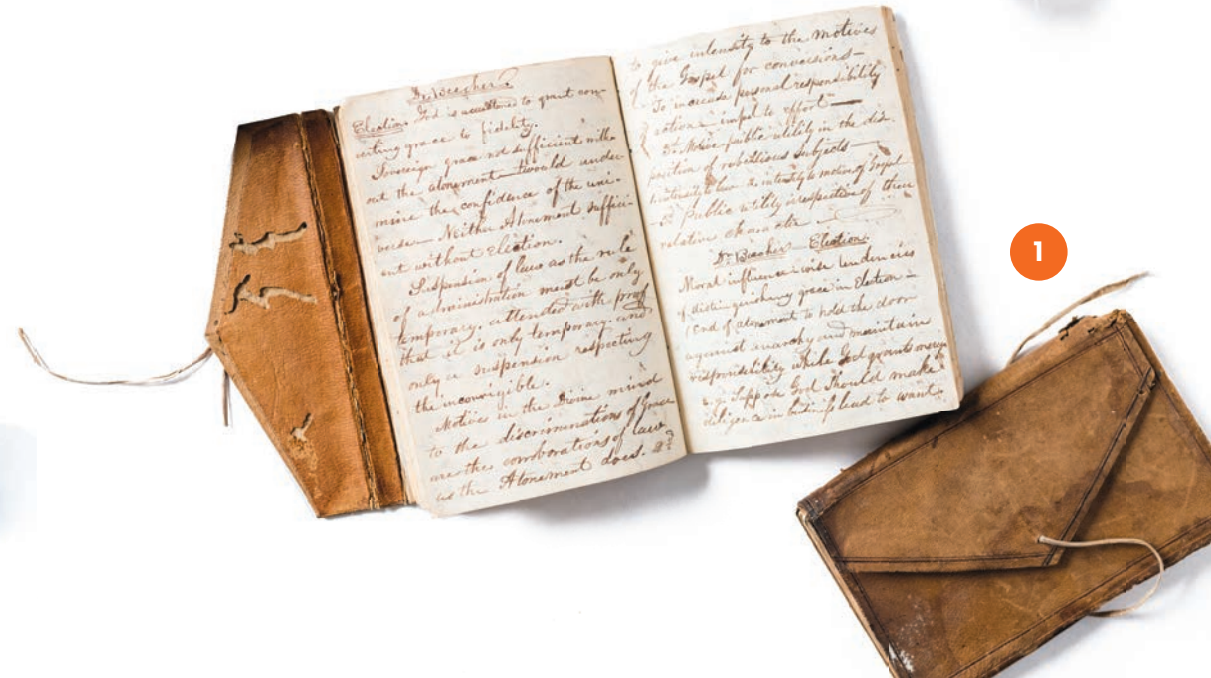 Dr. Beecher.
Election. God is accustomed to grant con-
verting grace to fidelity.
Sovereign grace not sufficient with-
out the atonement—would under-
mine the confidence of the uni-
verse—Neither Atonement suffici-
ent without Election.
Suspension of law as the rule
of administration must be only
temporary. attended with proof
that it is only temporary and
only a suspension respecting
the incorrigible.
Motives in the Divine mind
to the discriminations of Grace
are the corroborations of law
as the Atonement does.
to give intensity to the motives
of the Gospel for conversions—
To increase personal responsibility
& action—impel to effort—
public utility in the dis-
position of rebellious subjects—
intensity to motive of Gospel
Public utility irrespective of their
relative character—
Dr. Beecher—Election.
Moral influence—wise tendencies
of distinguishing grace in Election—
(End of atonement to hold the door
against anarchy and maintain
responsibility while God grants
Suppose God should make
diligence in business lead to want.
1